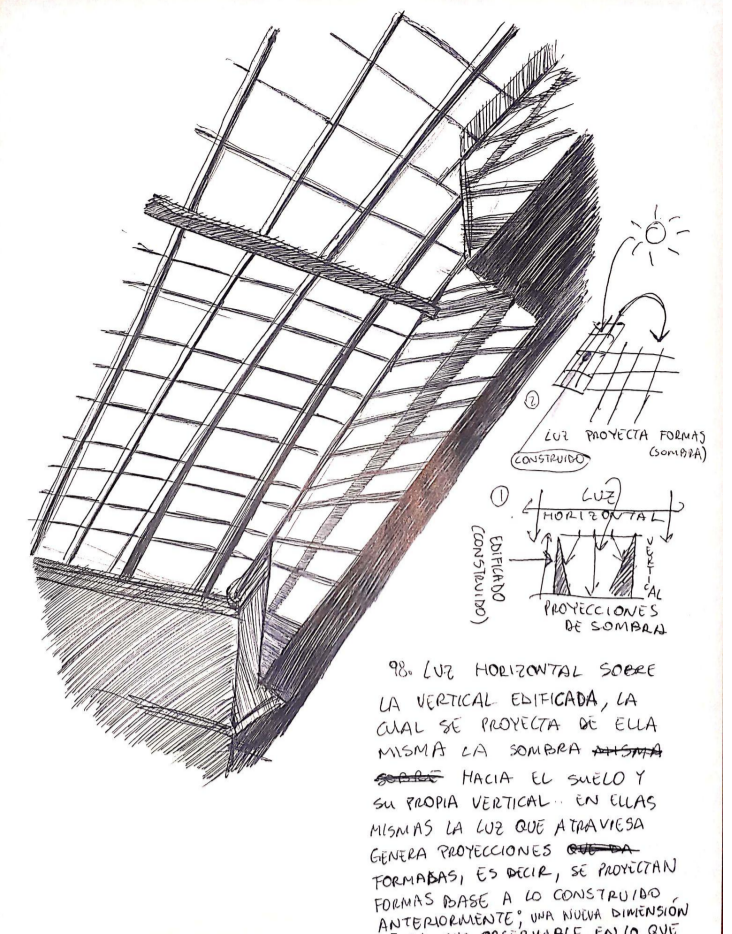 ②
LUZ PROYECTA FORMAS
(SOMBRA)
CONSTRUIDO
①
LUZ
HORIZONTAL
EDIFICADO
(CONSTRUIDO)
VERTICAL
PROYECCIONES
DE SOMBRA
98. LUZ HORIZONTAL SOBRE
LA VERTICAL EDIFICADA, LA
CUAL SE PROYECTA DE ELLA
MISMA LA SOMBRA
SOBRE HACIA EL SUELO Y
SU PROPIA VERTICAL.. EN ELLAS
MISMAS LA LUZ QUE ATRAVIESA
GENERA PROYECCIONES QUE DA
FORMADAS, ES DECIR, SE PROYECTAN
FORMAS BASE A LO CONSTRUIDO
ANTERIORMENTE; UNA NUEVA DIMENSIÓN
OBSERVABLE EN LO QUE